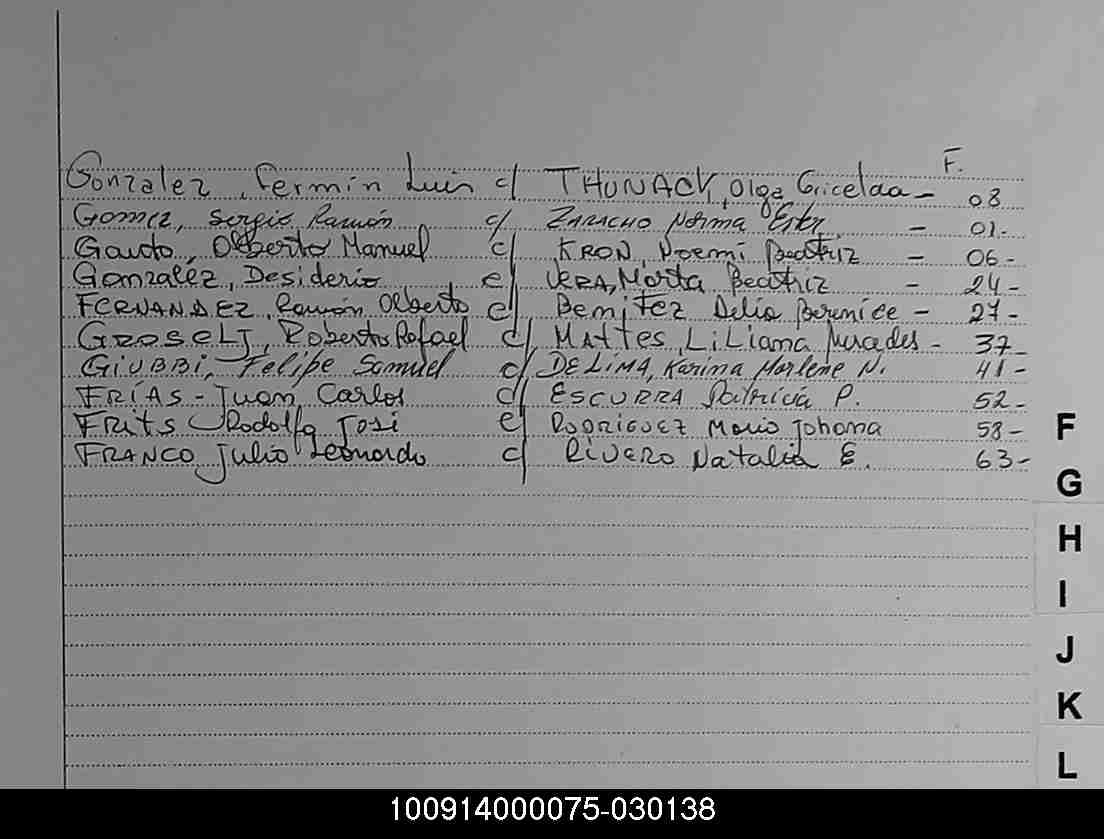 F.
Gonzalez, Fermin Luis c/ THUNACK, Olga Gricelda - 08
Gomez, Sergio Ramón c/ ZARACHO Norma Ester - 01-
Gauto, Alberto Manuel c/ KRON, Noemi Beatriz - 06-
Gonzalez, Desiderio c/ VERA, Marta Beatriz - 24-
FERNANDEZ, Ramón Alberto c/ Benitez Delia Berenice - 27-
GROSELJ, Roberto Rafael c/ Mattes, Liliana Mercedes - 37-
GIUBBI, Felipe Samuel c/ DE LIMA, Karina Marlene N. 41-
FRÍAS - Juan Carlos c/ ESCURRA Patricia P. 52-
FRITS Rodolfo José c/ RODRIGUEZ Johana 58-
FRANCO Julio Leonardo c/ Rivero Natalia E. 63-
F
G
H
I
J
K
L
100914000075-030138